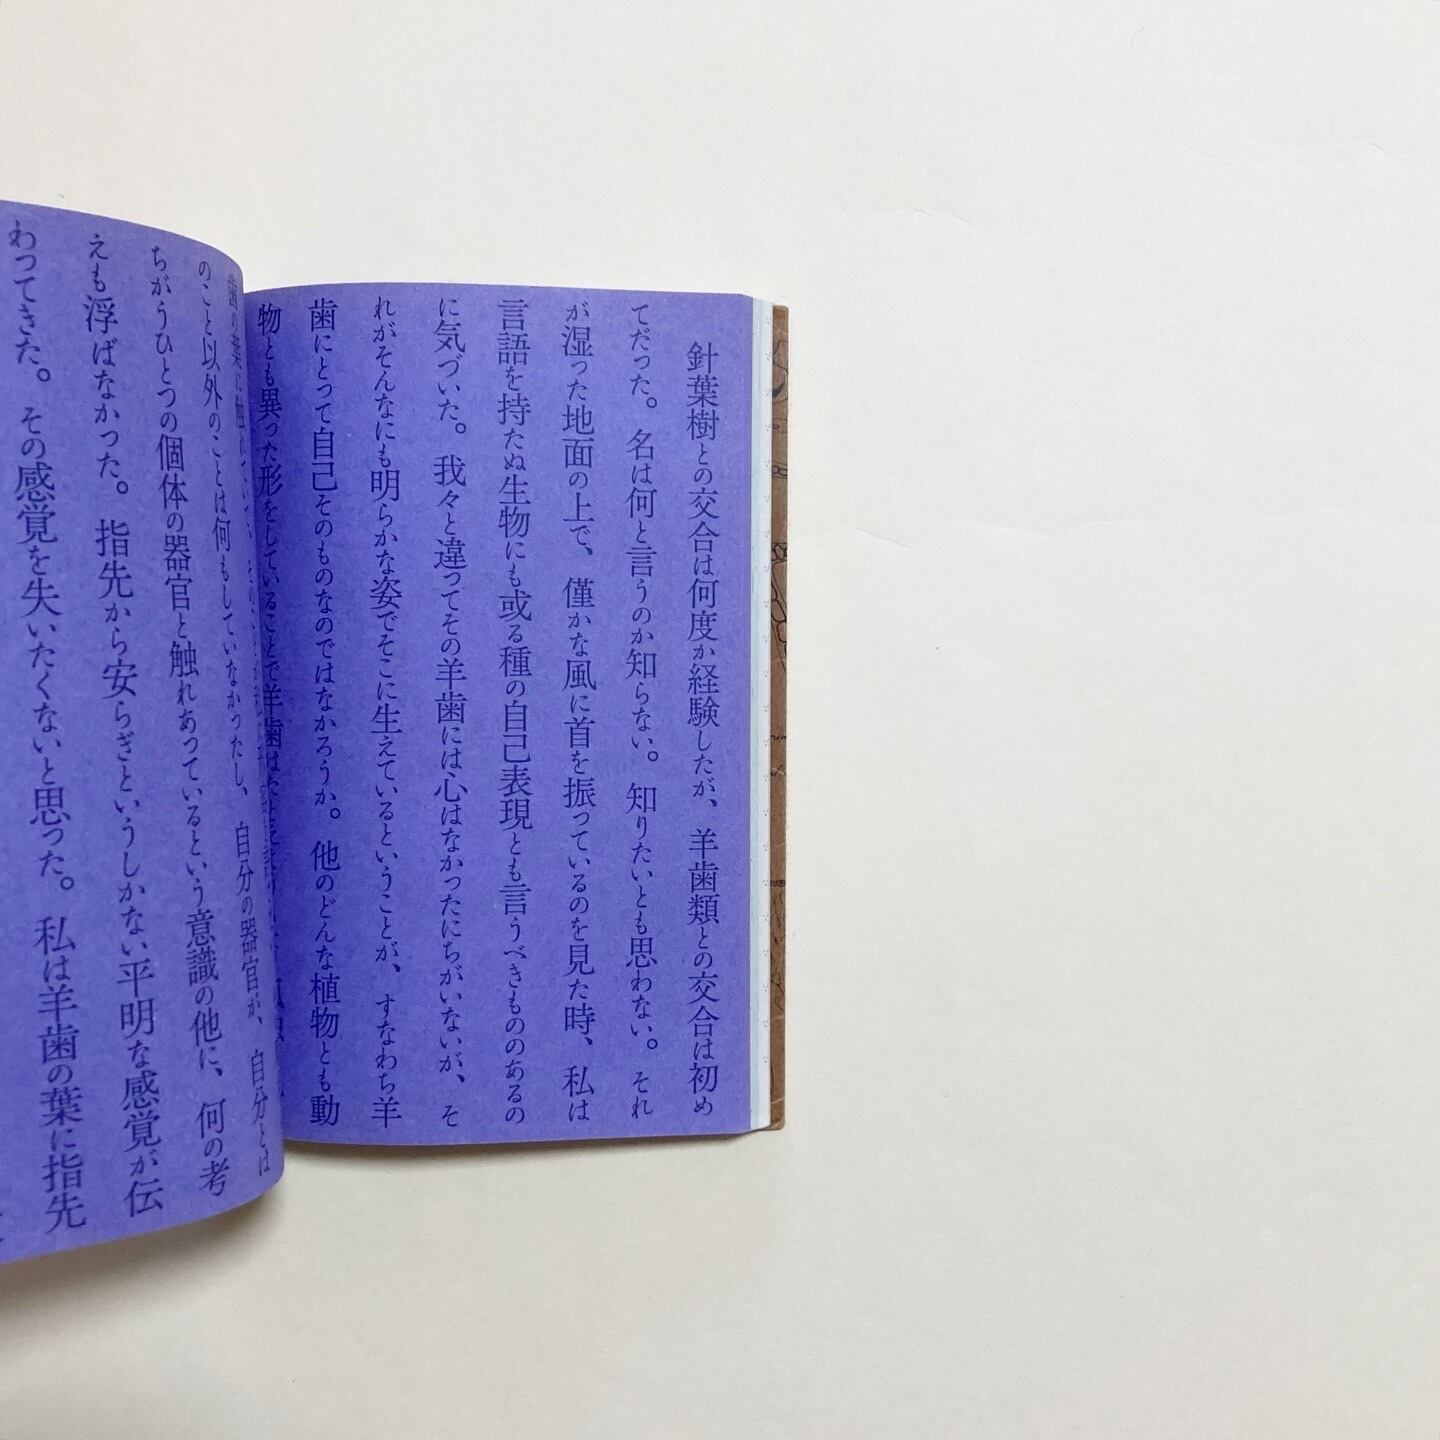 針葉樹との交合は何度か経験したが、羊歯類との交合は初め
てだった。名は何と言うのか知らない。知りたいとも思わない。それ
が湿った地面の上で、僅かな風に首を振っているのを見た時、私は
言語を持たぬ生物にも或る種の自己表現とも言うべきもののあるの
に気づいた。我々と違ってその羊歯には心はなかったにちがいないが、そ
れがそんなにも明らかな姿でそこに生えているということが、すなわち羊
歯にとって自己そのものなのではなかろうか。他のどんな植物とも動
物とも異った形をしていることで羊歯は
歯の葉に触れて
のこと以外のことは何もしていなかったし、自分の器官が、自分とは
ちがうひとつの個体の器官と触れあっているという意識の他に、何の考
えも浮ばなかった。指先から安らぎというしかない平明な感覚が伝
わってきた。その感覚を失いたくないと思った。私は羊歯の葉に指先